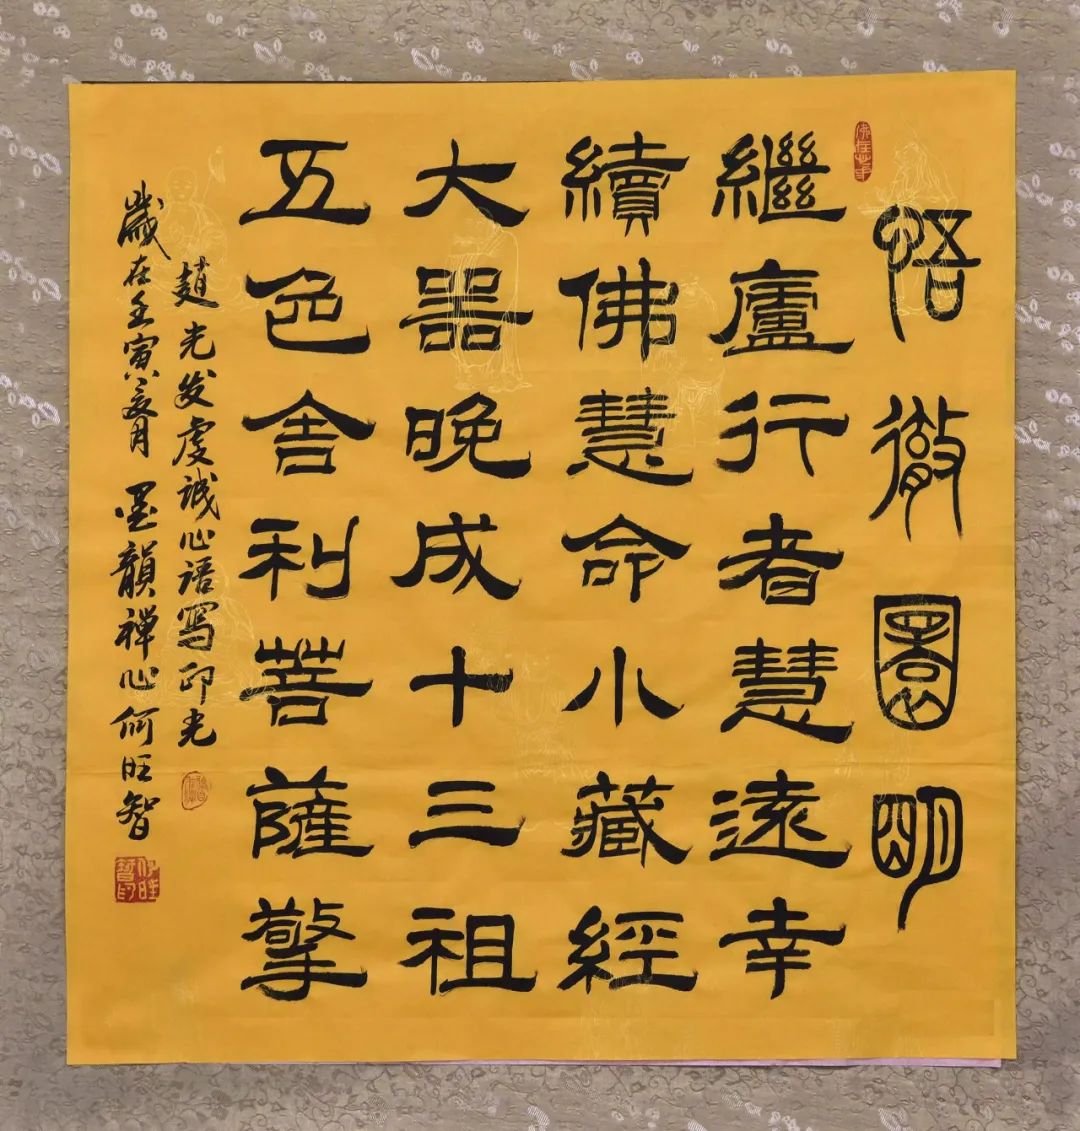 悟徹園明
繼廬行者慧遠幸
續佛慧命小藏經
大器晚成十三祖
五色舍利菩薩擎
趙光发虔誠心語寫印光
歲在壬寅亥月 墨韻禪心何旺智
何旺智印